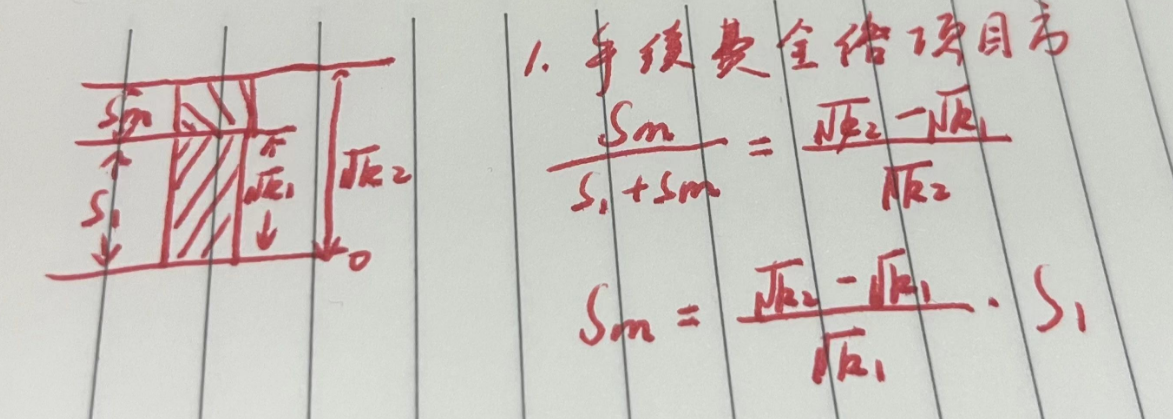 Sm
S₁
√k₁
√k₂
0
1. 手续费全给项目方
Sm / (S₁ + Sm) = (√k₂ - √k₁) / √k₂
Sm = (√k₂ - √k₁) / √k₁ · S₁